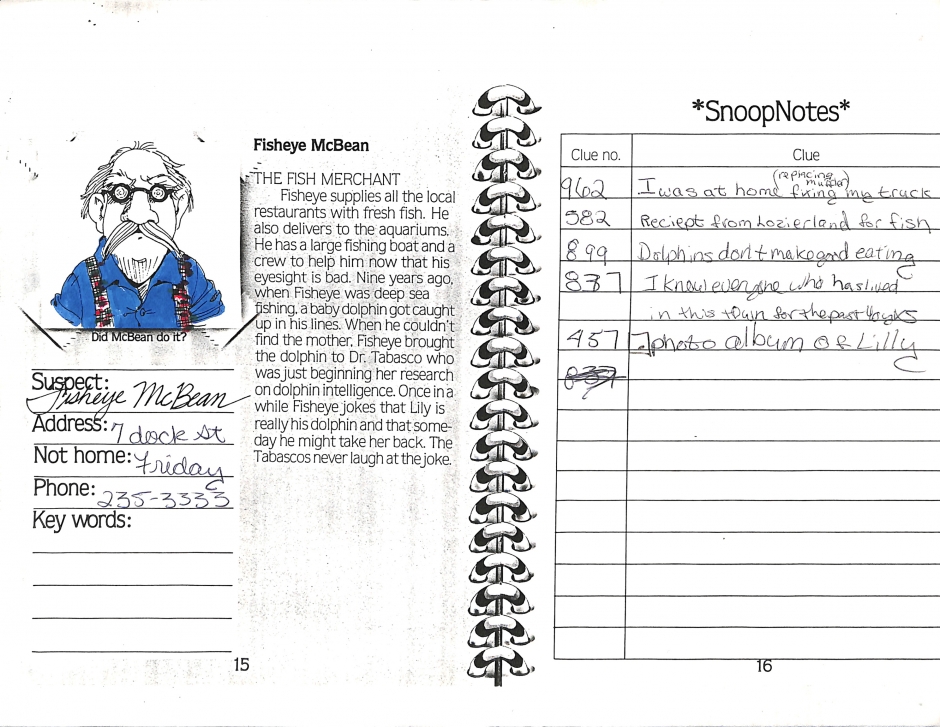 Did McBean do it?
Suspect: Fisheye McBean
Address: 7 dock St
Not home: Friday
Phone: 235-3333
Key words:
Fisheye McBean
THE FISH MERCHANT
Fisheye supplies all the local
restaurants with fresh fish. He
also delivers to the aquariums.
He has a large fishing boat and a
crew to help him now that his
eyesight is bad. Nine years ago,
when Fisheye was deep sea
fishing, a baby dolphin got caught
up in his lines. When he couldn't
find the mother, Fisheye brought
the dolphin to Dr. Tabasco who
was just beginning her research
on dolphin intelligence. Once in a
while Fisheye jokes that Lily is
really his dolphin and that some-
day he might take her back. The
Tabascos never laugh at the joke.
15
*SnoopNotes*
Clue no. Clue
962 I was at home (replacing muffler) fixing my truck
582 Reciept from Lozierland for fish
899 Dolphins don't make good eating
837 I know everyone who has lived
in this town for the past
457 photo album of Lilly
16